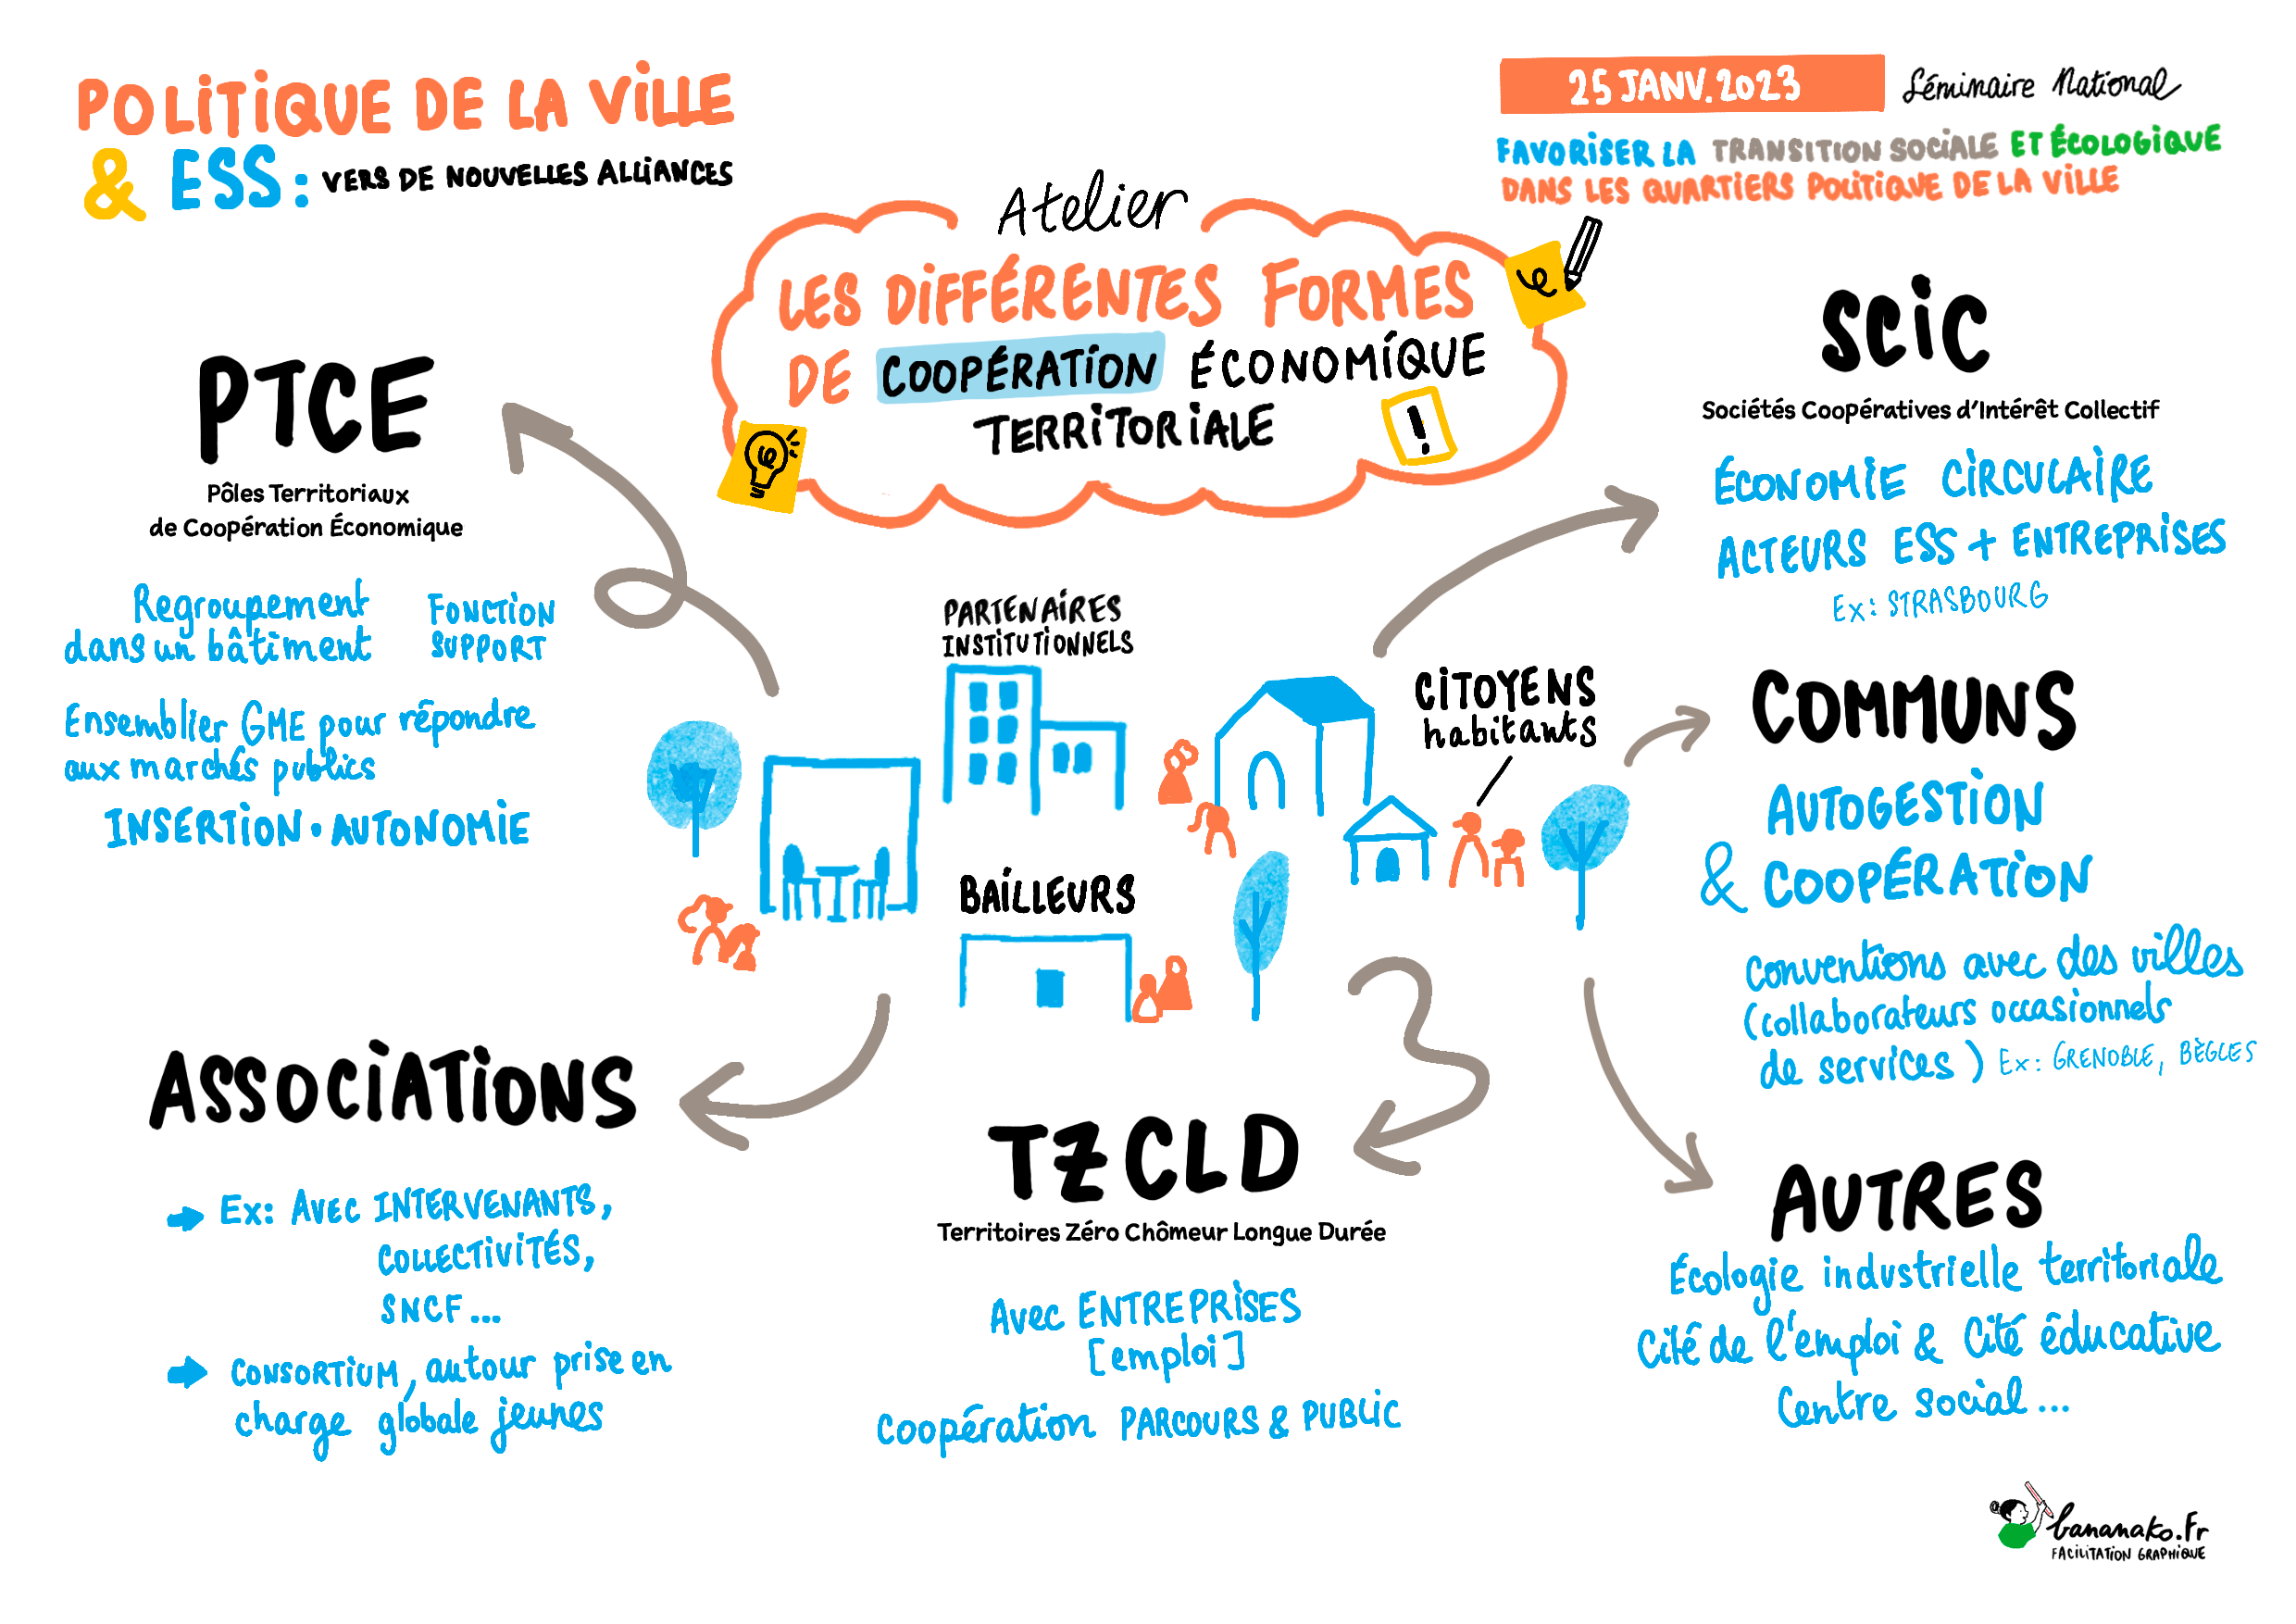 POLITIQUE DE LA VILLE
& ESS : VERS DE NOUVELLES ALLIANCES
25 JANV. 2023
Séminaire National
FAVORISER LA TRANSITION SOCIALE ET ÉCOLOGIQUE
DANS LES QUARTIERS POLITIQUE DE LA VILLE
Atelier
LES DIFFÉRENTES FORMES
DE COOPÉRATION ÉCONOMIQUE
TERRITORIALE
!
PTCE
Pôles Territoriaux
de Coopération Économique
Regroupement
dans un bâtiment
FONCTION
SUPPORT
Ensemblier GME pour répondre
aux marchés publics
INSERTION • AUTONOMIE
SCIC
Sociétés Coopératives d'Intérêt Collectif
ÉCONOMIE CIRCULAIRE
ACTEURS ESS + ENTREPRISES
Ex : STRASBOURG
PARTENAIRES
INSTITUTIONNELS
CITOYENS
habitants
BAILLEURS
COMMUNS
AUTOGESTION
& COOPÉRATION
Conventions avec des villes
(collaborateurs occasionnels
de services) Ex : GRENOBLE, BÈGLES
ASSOCIATIONS
Ex : AVEC INTERVENANTS,
COLLECTIVITÉS,
SNCF...
CONSORTIUM, autour prise en
charge globale jeunes
TZCLD
Territoires Zéro Chômeur Longue Durée
Avec ENTREPRISES
[emploi]
Coopération PARCOURS & PUBLIC
AUTRES
Écologie industrielle territoriale
Cité de l'emploi & Cité éducative
Centre social...
bananako.Fr
FACILITATION GRAPHIQUE